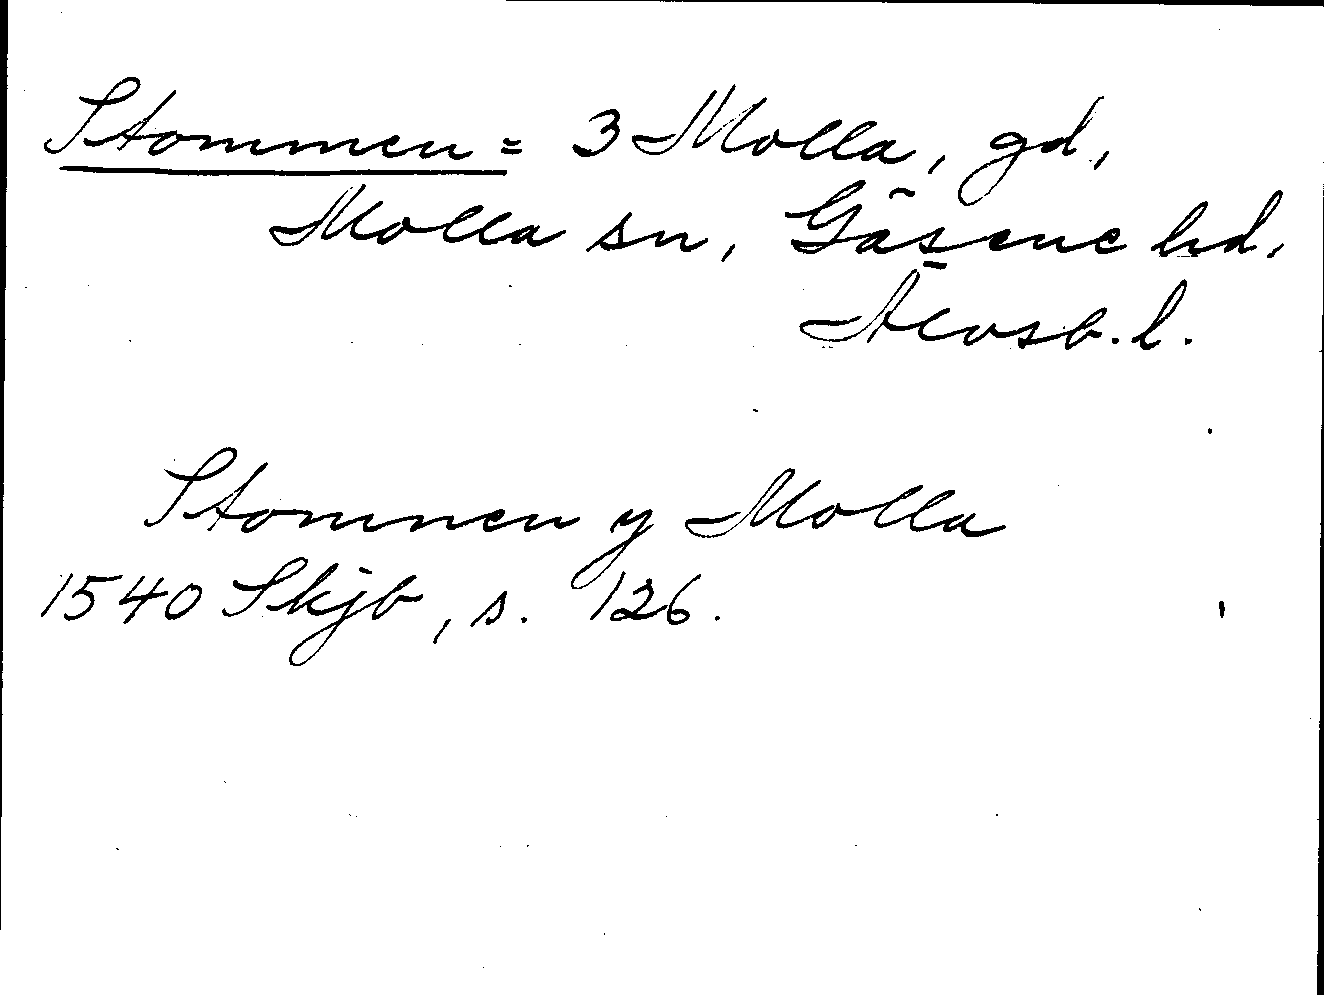 Stommen = 3 Molla, gd,
Molla sn, Gäsene hd,
Älvsb. l.
Stommen y Molla
1540 Skjb, s. 126.